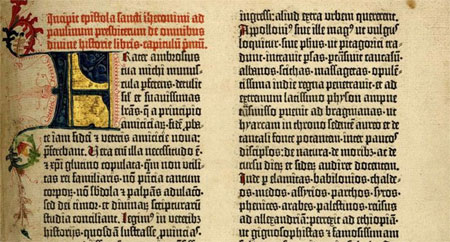 Incipit epistola sancti iheronimi ad
paulinum presbiterum de omnibus
divine historie libris. capitulū primū.
Frater ambrosius
tua michi munus-
cula perferens. detulit
sil' et suavissimas
lr̄as. q̄ a principio
amiciciarū. fidē pba-
te iam fidei et veteris amicicie nova
pferebant. Vera em̄ illa necessitudo ē.
et xp̄i glutino copulata. qm̄ non vtili-
tas rei familiaris. nō pn̄cia tantum
corporꝝ. nō sbdola et palpās adulacō.
sed dei timor. et divinarū scripturarū
studia conciliant. Legim⁹ in veteribꝫ
historijs. quosdā lustrasse puīncias.
ingressi: aliud extra urbem quererent.
Appolloni⁹ sive ille mag⁹ ut vulgus
loquitur. sive ph̄us. ut pitagorici tra-
dunt. intravit psas. ptrāsivit caucasū.
albanos. scithas. massagetas. opulen-
tissima indie regna penetravit: et ad
extremum latissimo physon ampne
trāsmisso puenit ad bragmanas. ut
hyarcam in throno sedentē aureo et de
tantali fonte potantem. inter paucos
discipulos. de natura. de moribꝫ. ac de
cursu dierū et siderū audiret docentem.
Inde p elamitas. babilonios. chalde-
os. medos. assyrios. parthos. syros.
phenices. arabes. palestinos. reversus
ad alexandriā. perrexit ad ethiopiā.
ut gignosophistas et famosissimam